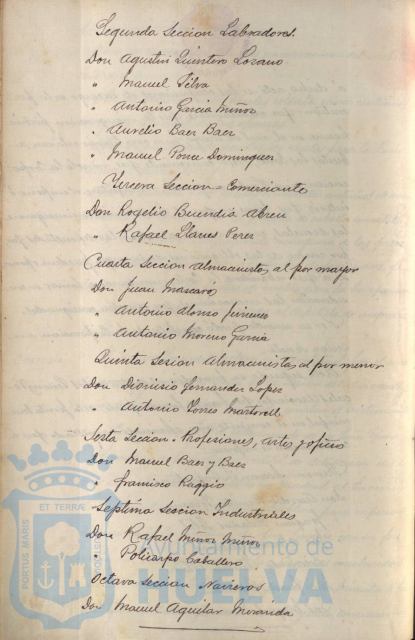 Segunda Seccion Labradores.
Don Agustin Quintero Lozano
" Manuel Silva
" Antonio Garcia Muñoz
" Aurelio Baez Baez
" Manuel Ponce Dominguez
Tercera Seccion = Comerciante
Don Rogelio Buendia Abreu
" Rafael Llanes Perez
Cuarta Seccion Almacenistas al por mayor
Don Juan Mascaró
" Antonio Alonso Jimenez
" Antonio Moreno Garcia
Quinta Sesion Almacenistas al por menor
Don Dionisio Fernandez Lopez
" Antonio Torres Martorell
Sexta Seccion. Profesiones, artes y oficios
Don Manuel Baez y Baez
" Francisco Raggio
Septima Seccion Industriales
Don Rafael Muñoz Muñoz
" Policarpo Caballero
Octava Seccion Navieros
Don Manuel Aguilar Miranda
PORTUS MARIS ET TERRAE
Ayuntamiento de
HUELVA